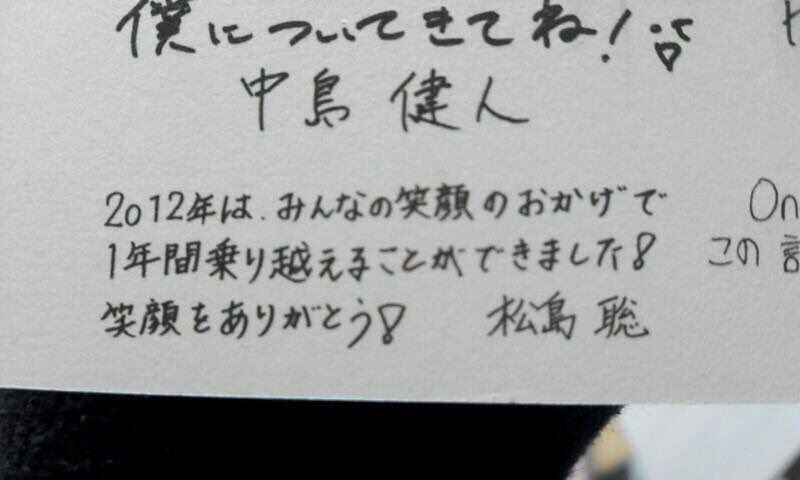 僕についてきてね!
中島 健人
2012年は、みんなの笑顔のおかげで
1年間乗り越えることができました!
笑顔をありがとう!
松島 聡
On
この言